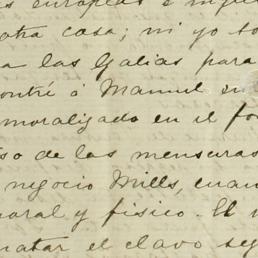 otra casa; ni yo to
a las Galias para
ontré á Manuel en
moralizado en el fon
so de las mensuras
negocio Mills, cuan
oral y físico. El
matar el clavo seg